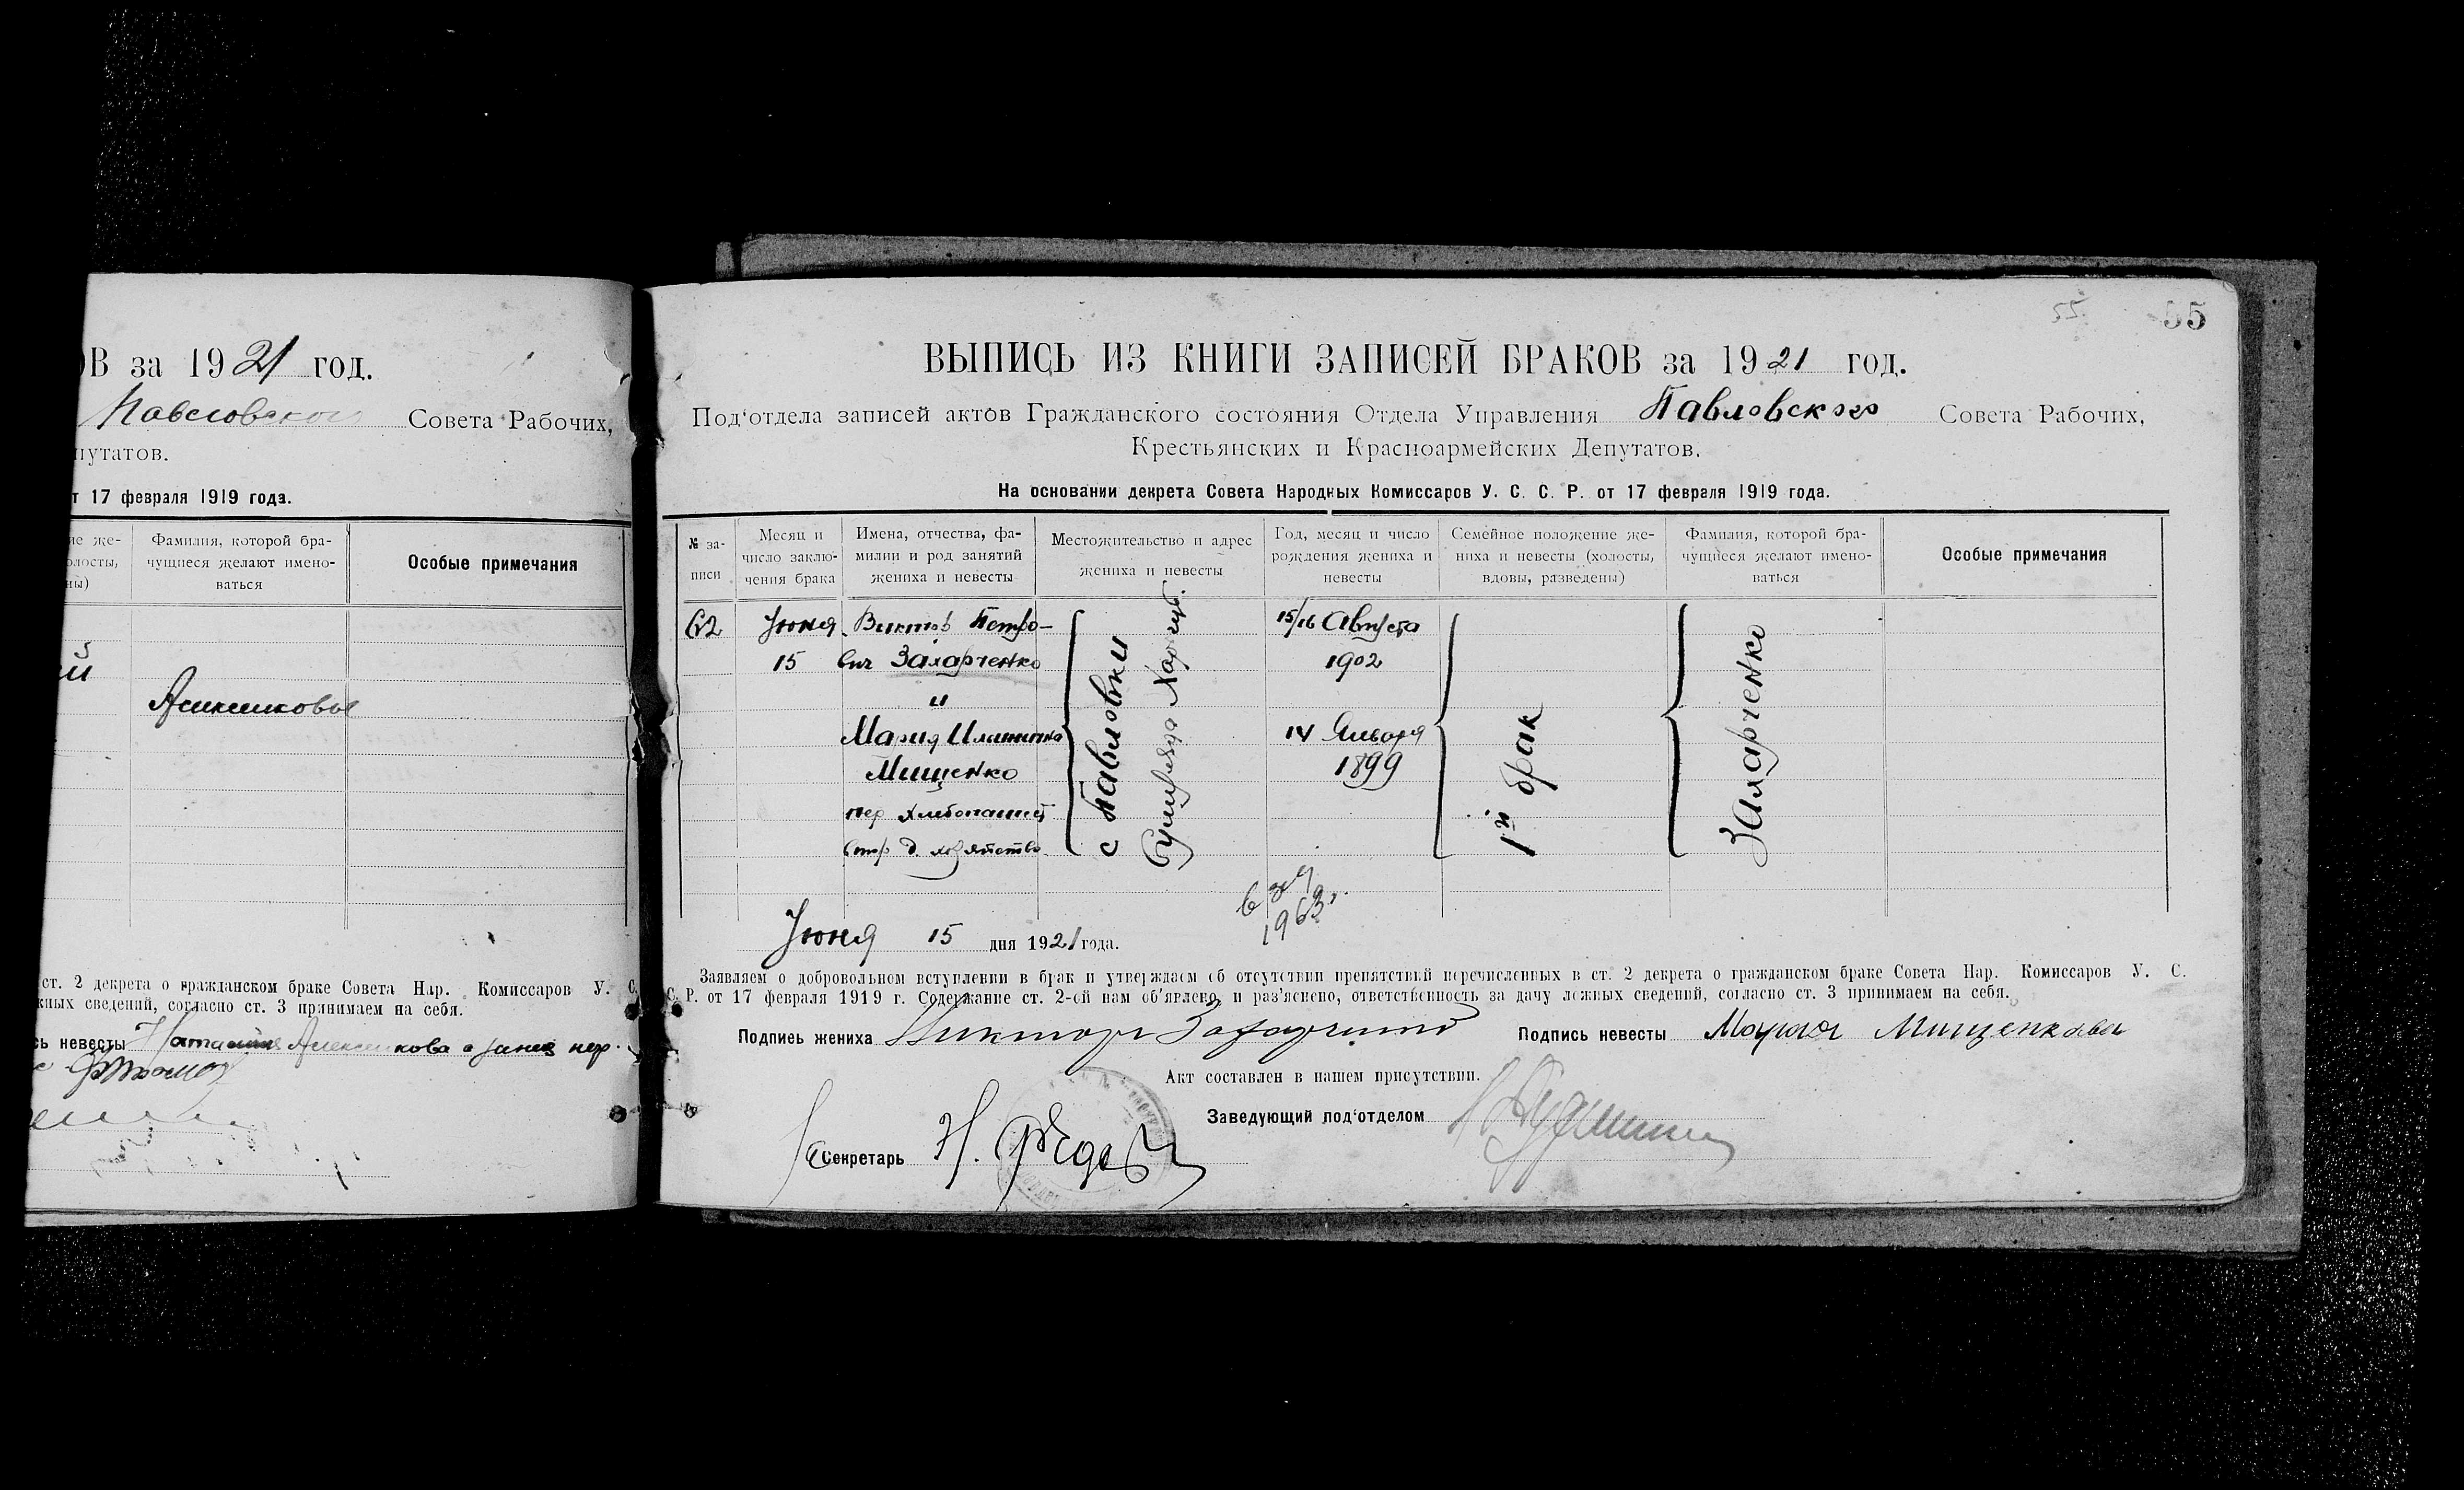 ОВ за 1921 год.
Павловского Совета Рабочих,
путатов.
т 17 февраля 1919 года.
ие же-
олосты,
ны)
Фамилия, которой бра-
чущиеся желают имено-
ваться
Особые примечания
ий
ст. 2 декрета о гражданском браке Совета Нар. Комиссаров У. С.
жных сведений, согласно ст. 3 принимаем на себя.
сь невесты Наталия
55 55
ВЫПИСЬ ИЗ КНИГИ ЗАПИСЕЙ БРАКОВ за 1921 год.
Под‘отдела записей актов Гражданского состояния Отдела Управления Павловского Совета Рабочих,
Крестьянских и Красноармейских Депутатов.
На основании декрета Совета Народных Комиссаров У. С. С. Р. от 17 февраля 1919 года.
№ за-
писи
Месяц и
число заклю-
чения брака
Имена, отчества, фа-
милии и род занятий
жениха и невесты
Местожительство и адрес
жениха и невесты
Год, месяц и число
рождения жениха и
невесты
Семейное положение же-
ниха и невесты (холосты,
вдовы, разведены)
Фамилия, которой бра-
чущиеся желают имено-
ваться
Особые примечания
62
Июня
15
Виктор Петро-
вич Захарченко
и
Мария
Мищенко
пер хлебопашец
втр д. хозяйство
с Павловки
Сумуезда Харгуб.
15/16 Августа
1902
14 Января
1899
1й брак
Захарченко
1963г.
Июня 15 дня 1921 года.
Заявляем о добровольном вступлении в брак и утверждаем об отсутствии препятствий перечисленных в ст. 2 декрета о гражданском браке Совета Нар. Комиссаров У. С.
С. Р. от 17 февраля 1919 г. Содержание ст. 2-ой нам об‘явлено, и раз‘яснено, ответственность за дачу ложных сведений, согласно ст. 3 принимаем на себя.
Подпись жениха Виктор Захарченко Подпись невесты Мария Мищенкова
Акт составлен в нашем присутствии.
Заведующий под‘отделом
Секретарь Н.